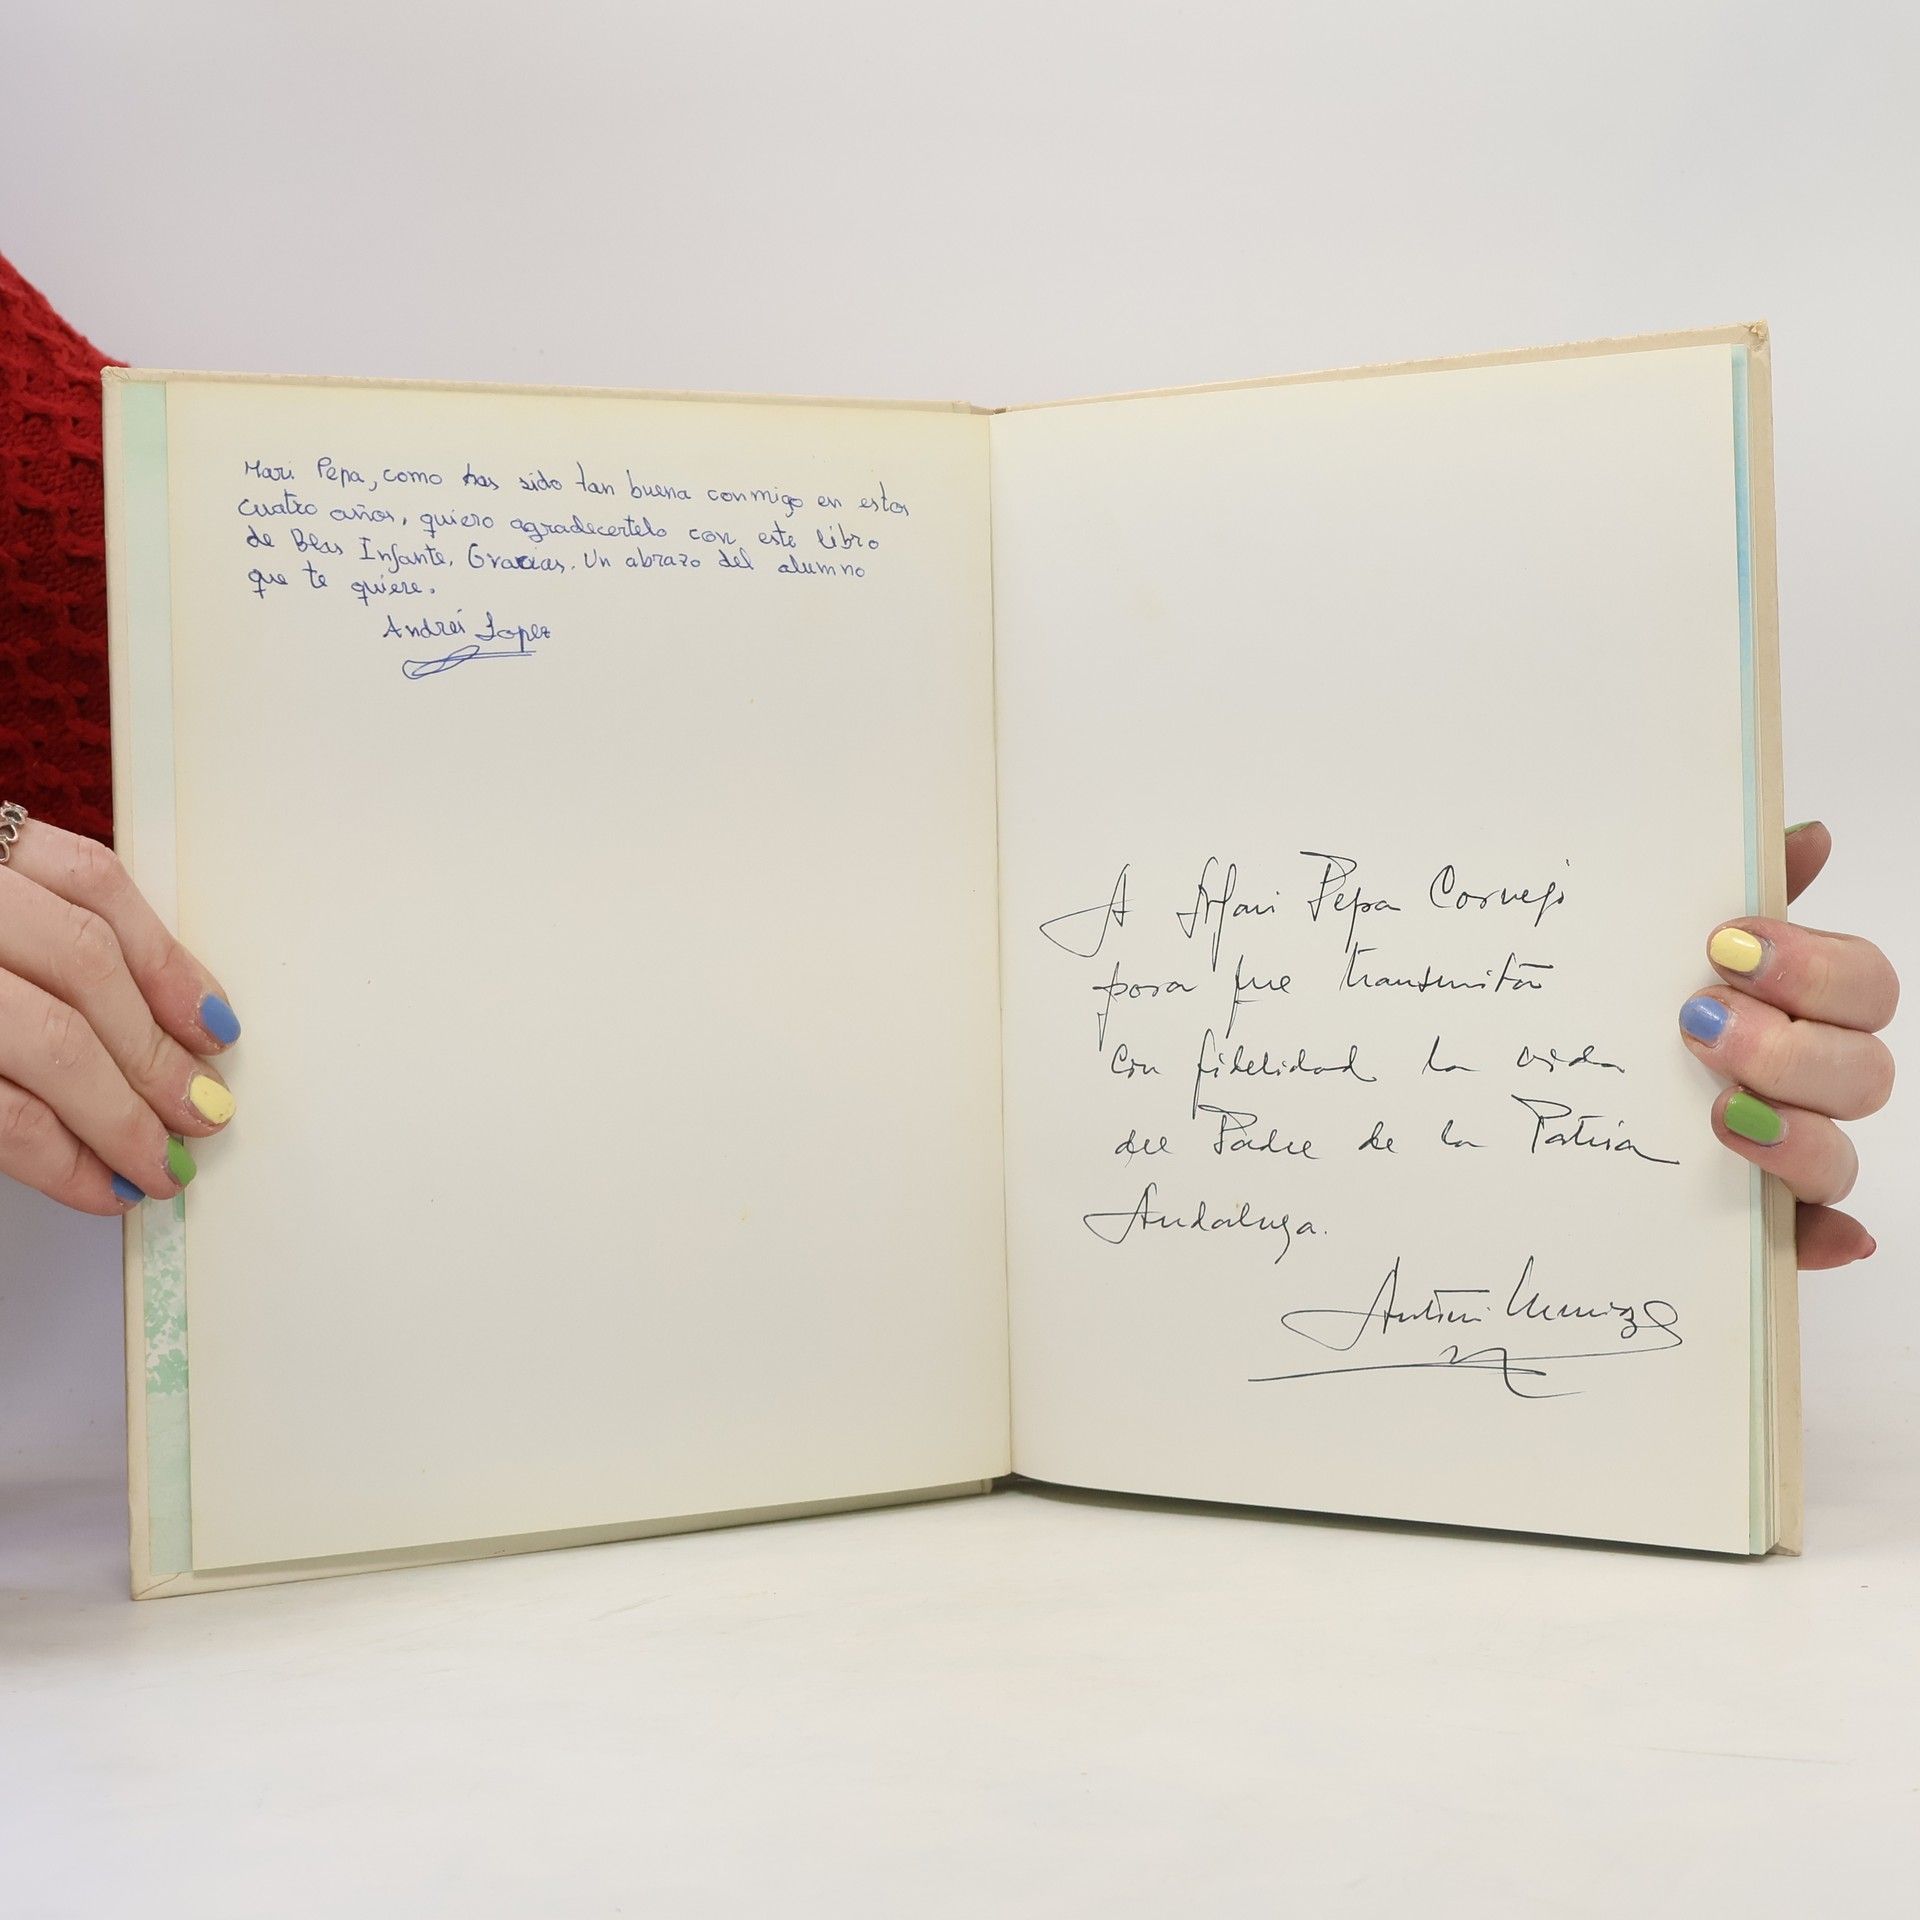 Mari Pepa, como has sido tan buena conmigo en estos
cuatro años, quiero agradecertelo con este libro
de Blas Infante. Gracias. Un abrazo del alumno
que te quiere.
Andrei Lopez
A Mari Pepa Cornejo
para que transmita
con fidelidad la vida
del Padre de la Patria
Andaluza.
Antonio